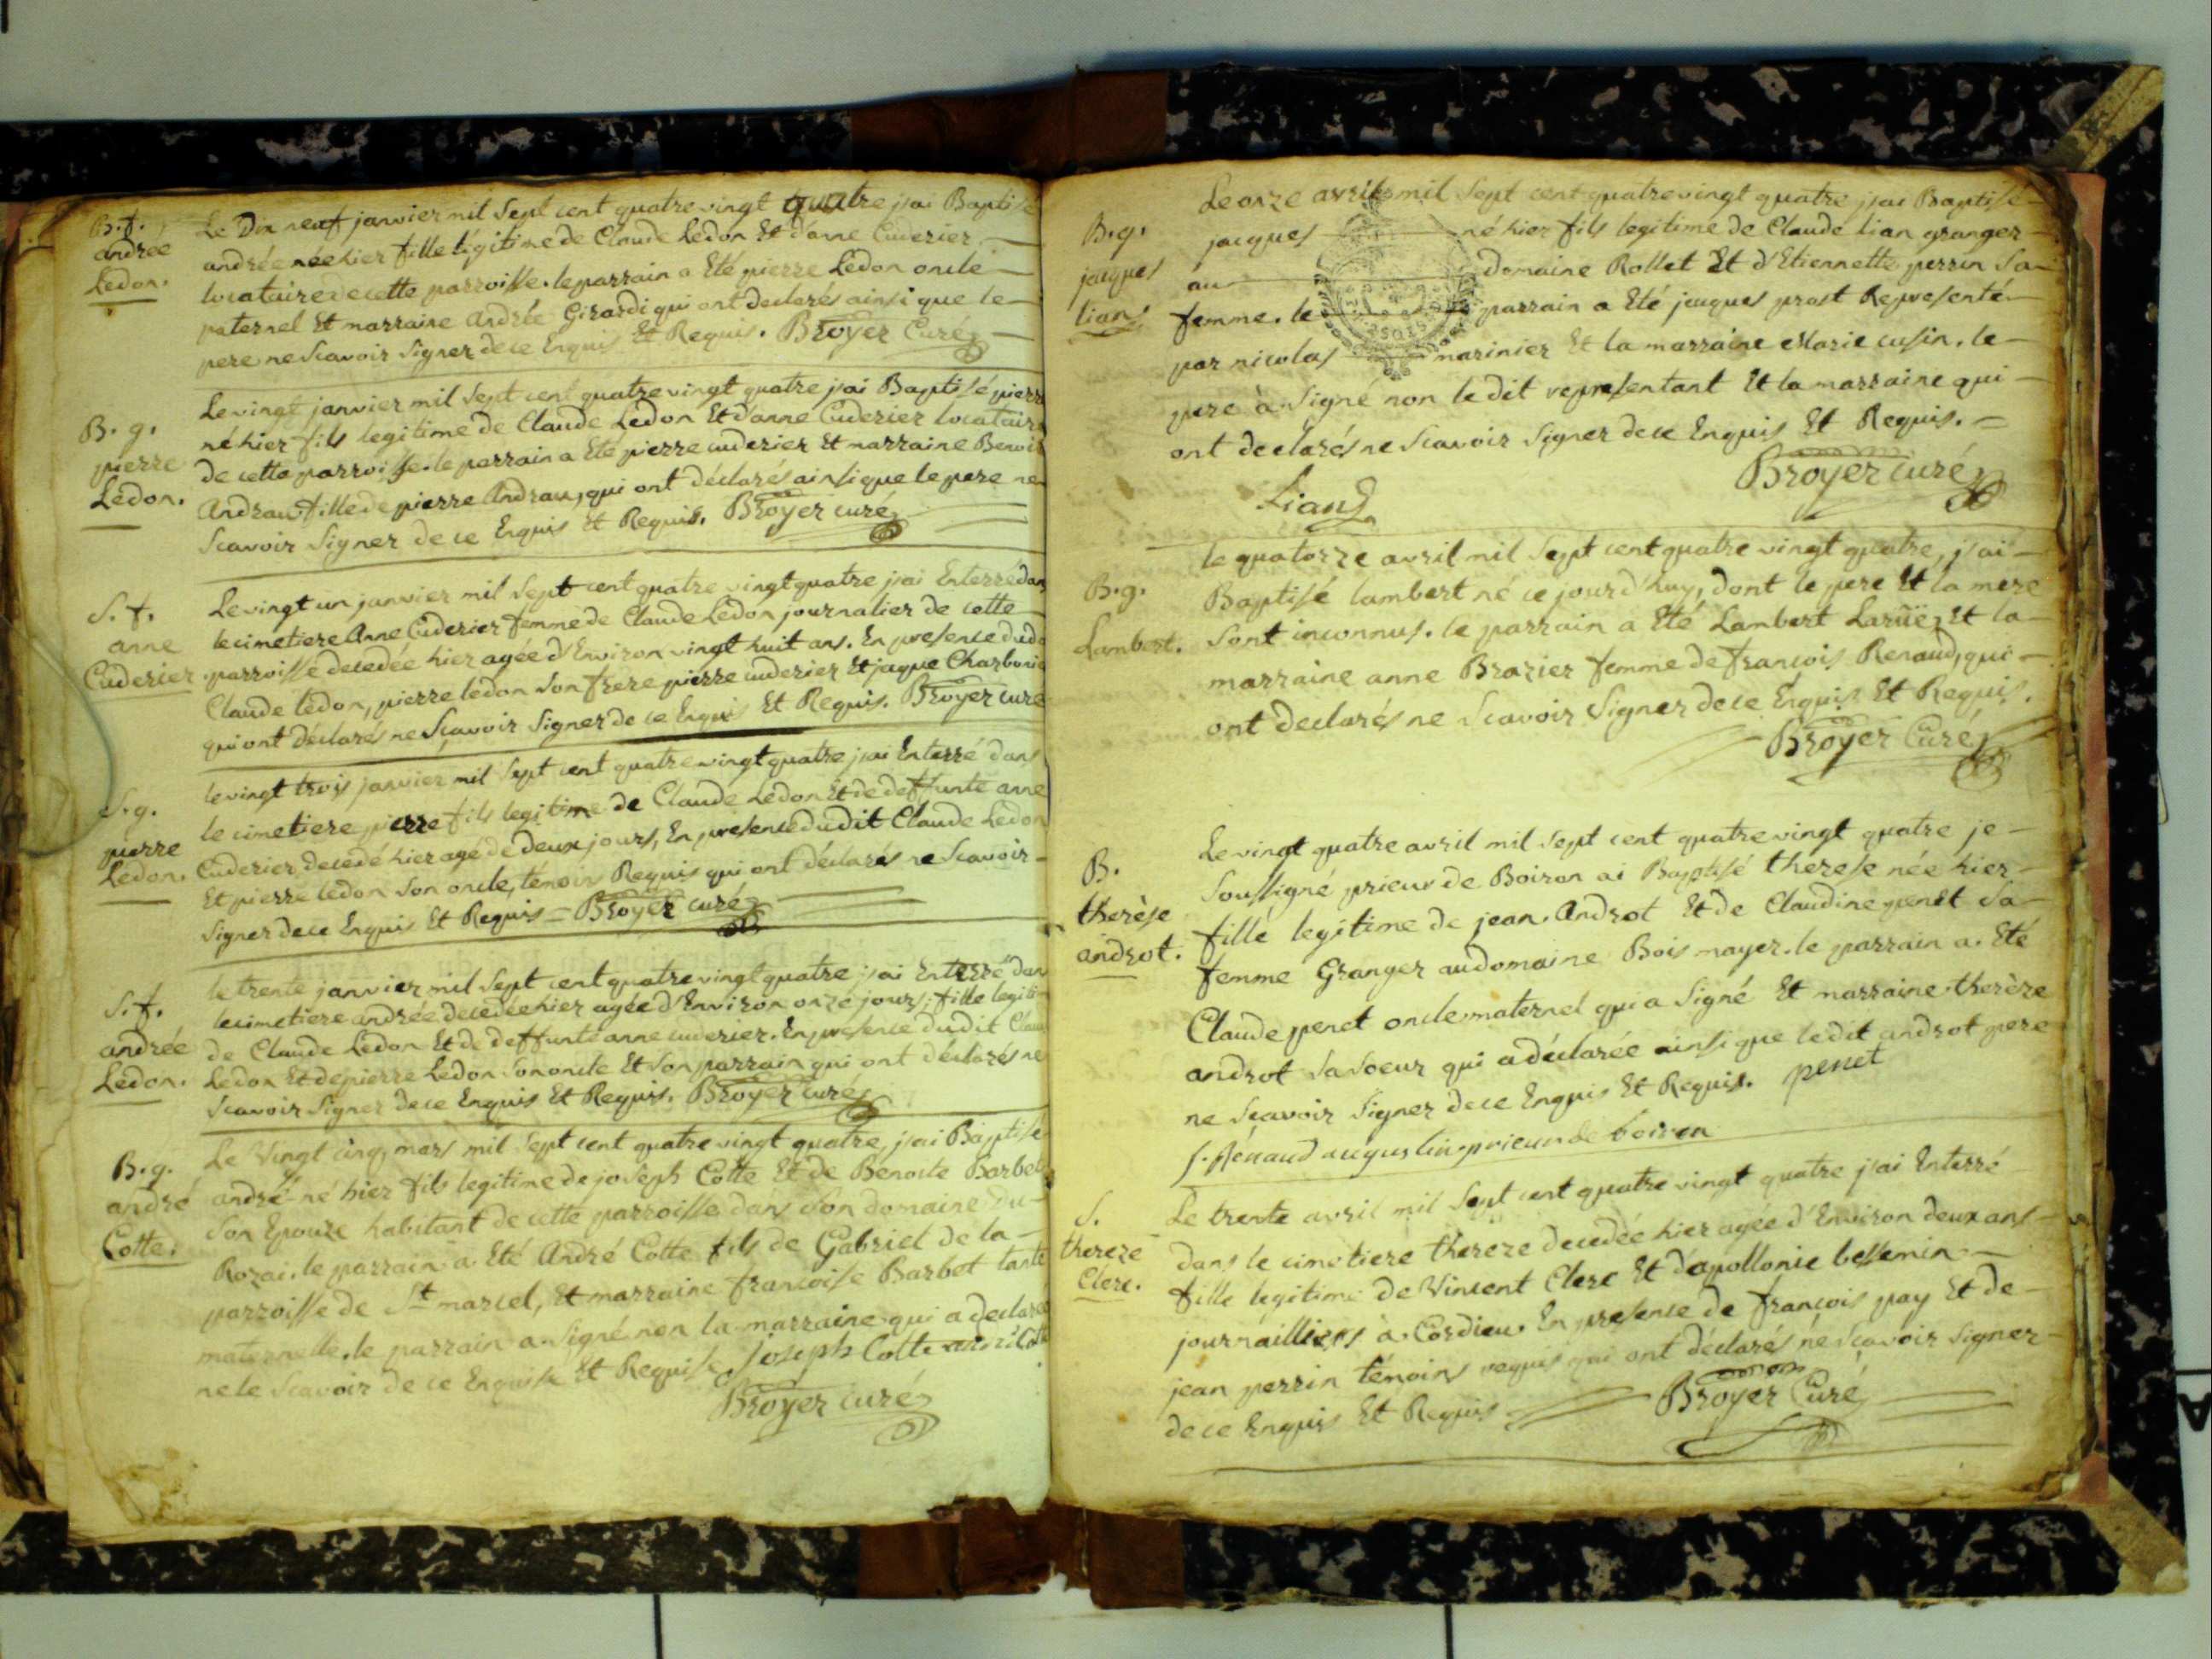 B.f.
andrée
Ledon.
Le Dix neuf janvier mil Sept cent quatre vingt quatre j'ai Baptisé
andrée née hier fille légitime de Claude Ledon Et d'anne Cuderier
locataire de cette parroisse. le parrain a Eté pierre Ledon oncle
paternel Et marraine andrée Girardi qui ont declarés ainsi que le
pere ne Scavoir Signer de ce Enquis Et Requis. Broyer Curé
B. g.
pierre
Ledon.
Le vingt janvier mil Sept cent quatre vingt quatre j'ai Baptisé pierre
né hier fils legitime de Claude Ledon Et d'anne Cuderier locataire
de cette parroisse. le parrain a Eté pierre cuderier Et marraine Benoit
Andrau fille de pierre Andrau, qui ont déclarés ainsi que le pere ne
Scavoir Signer de ce Enquis Et Requis. Broyer curé
S. f.
anne
Cuderier
Le vingt un janvier mil Sept cent quatre vingt quatre j'ai Enterré dans
le cimetiere Anne Cuderier femme de Claude Ledon journalier de cette
parroisse decedée hier agée d'Environ vingt huit ans. En presence dudit
Claude Ledon, pierre ledon Son frere pierre cuderier Et jaque Charbonie
qui ont déclarés ne Scavoir Signer de ce Enquis Et Requis. Broyer curé
S. g.
pierre
Ledon.
le vingt trois janvier mil Sept cent quatre vingt quatre j'ai Enterré dans
le cimetiere pierre fils legitime de Claude Ledon Et de deffunte anne
Cuderier, decedé hier agé de deux jours, En presence dudit Claude Ledon
Et pierre ledon Son oncle, témoins Requis qui ont déclarés ne Scavoir
Signer de ce Enquis Et Requis = Broyer curé
S. f.
andrée
Ledon.
le trente janvier mil Sept cent quatre vingt quatre j'ai Enterré dans
le cimetiere andrée decedée hier agée d'Environ onze jours; fille legiti-
de Claude Ledon Et de deffunte anne cuderier. En presence dudit Claude
Ledon Et de pierre Ledon Son oncle Et Son parrain qui ont déclarés ne
Scavoir Signer de ce Enquis Et Requis. Broyer curé
B. g.
andré
Cotte.
Le Vingt cinq mars mil Sept cent quatre vingt quatre, j'ai Baptisé
andré né hier fils legitime de joseph Cotte Et de Benoite Barbet
Son Epouze habitant de cette parroisse dans Son domaine du
Rozai. le parrain a Eté André Cotte fils de Gabriel de la
parroisse de St marcel, Et marraine francoise Barbet tante
maternelle. le parrain a Signé non la marraine qui a declaré
ne le Scavoir de ce Enquise Et Requise Joseph Cotte
Broyer curé
B. g.
jacques
lian
Le onze avril mil Sept cent quatre vingt quatre j'ai Baptisé
jacques né hier fils legitime de Claude lian granger
au domaine Rollet Et d'Etiennette perrin Sa
femme. le parrain a Eté jacques prost Representé
par nicolas marinier Et la marraine Marie cusin. le
pere à Signé non le dit representant Et la marraine qui
ont declarés ne Scavoir Signer de ce Enquis Et Requis. =
Broyer curé
Lian
B. g.
Lambert.
le quatorze avril mil Sept cent quatre vingt quatre, j'ai
Baptisé lambert né ce jourd'huy, dont le pere Et la mere
Sont inconnus. le parrain a Eté Lambert Larüe, Et la
marraine anne Brazier femme de françois Renaud, qui
ont declarés ne Scavoir Signer de ce Enquis Et Requis.
Broyer Curé
B.
therèse
androt.
Le vingt quatre avril mil Sept cent quatre vingt quatre je
Soussigné prieur de Boiron ai Baptisé therese née hier
fille legitime de jean Androt Et de Claudine penet Sa
femme Granger au domaine Bois mayer. le parrain a Eté
Claude penet oncle maternel qui a Signé Et marraine therèze
androt Sa Soeur qui a déclarée ainsi que le dit androt pere
ne Scavoir Signer de ce Enquis Et Requis. penet
f. Rénaud augustin prieur de boiron
S.
thereze
Clerc.
Le trente avril mil Sept cent quatre vingt quatre j'ai Enterré
dans le cimetiere thereze decedée hier agée d'Environ deux ans
fille légitime de Vincent Clerc Et d'apollonie bessemin
journailliers à Cordieu. En presence de françois pay Et de
jean perrin témoins requis qui ont déclarés ne Scavoir Signer
de ce Enquis Et Requis Broyer Curé